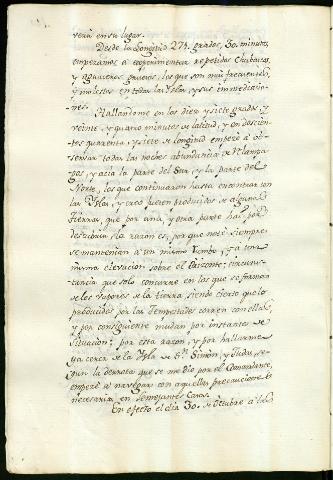 verá en su lugar.
Desde la Longitud 271. grados, 30. minutos,
empezamos à experimentar repetidos chubascos,
y aguaceros gruesos, los que son mui frecuentes,
y molestos en todas las Yslas, y sus inmediacio-
nes.
Hallandome en los diez y siete grados, y
veinte, y quatro minutos de latitud, y en doscien-
tos quarenta, y siete de longitud empezé à ob-
servar todas las noches abundancia de Relampa-
gos, àcia la parte del Sur, y la parte del
Norte, los que continuaron hasta encontrar con
las Yslas, y creo fuesen producidos de algunas
tierras, que por una, y otra parte hai por
descubrir. la razon es, por que estos siempre
se mantenian à un mismo Rumbo, y à una
misma elevacion sobre el Orizonte; circunstan-
cia que solo concurre en los que se forman
de los vapores de la tierra siendo cierto que los
producidos por las Tempestades corren con ellas,
y por consiguiente mudan por instantes de
situacion: por esta razon, y por hallarme
ya cerca de la Ysla de Sn. Simon, y Judas, se-
gun la derrota que se me dio por el Comandante,
empezé à navegar con aquellas precauciones
necesarias en semejantes Casos.
En efecto el dia 30. de Octubre à las